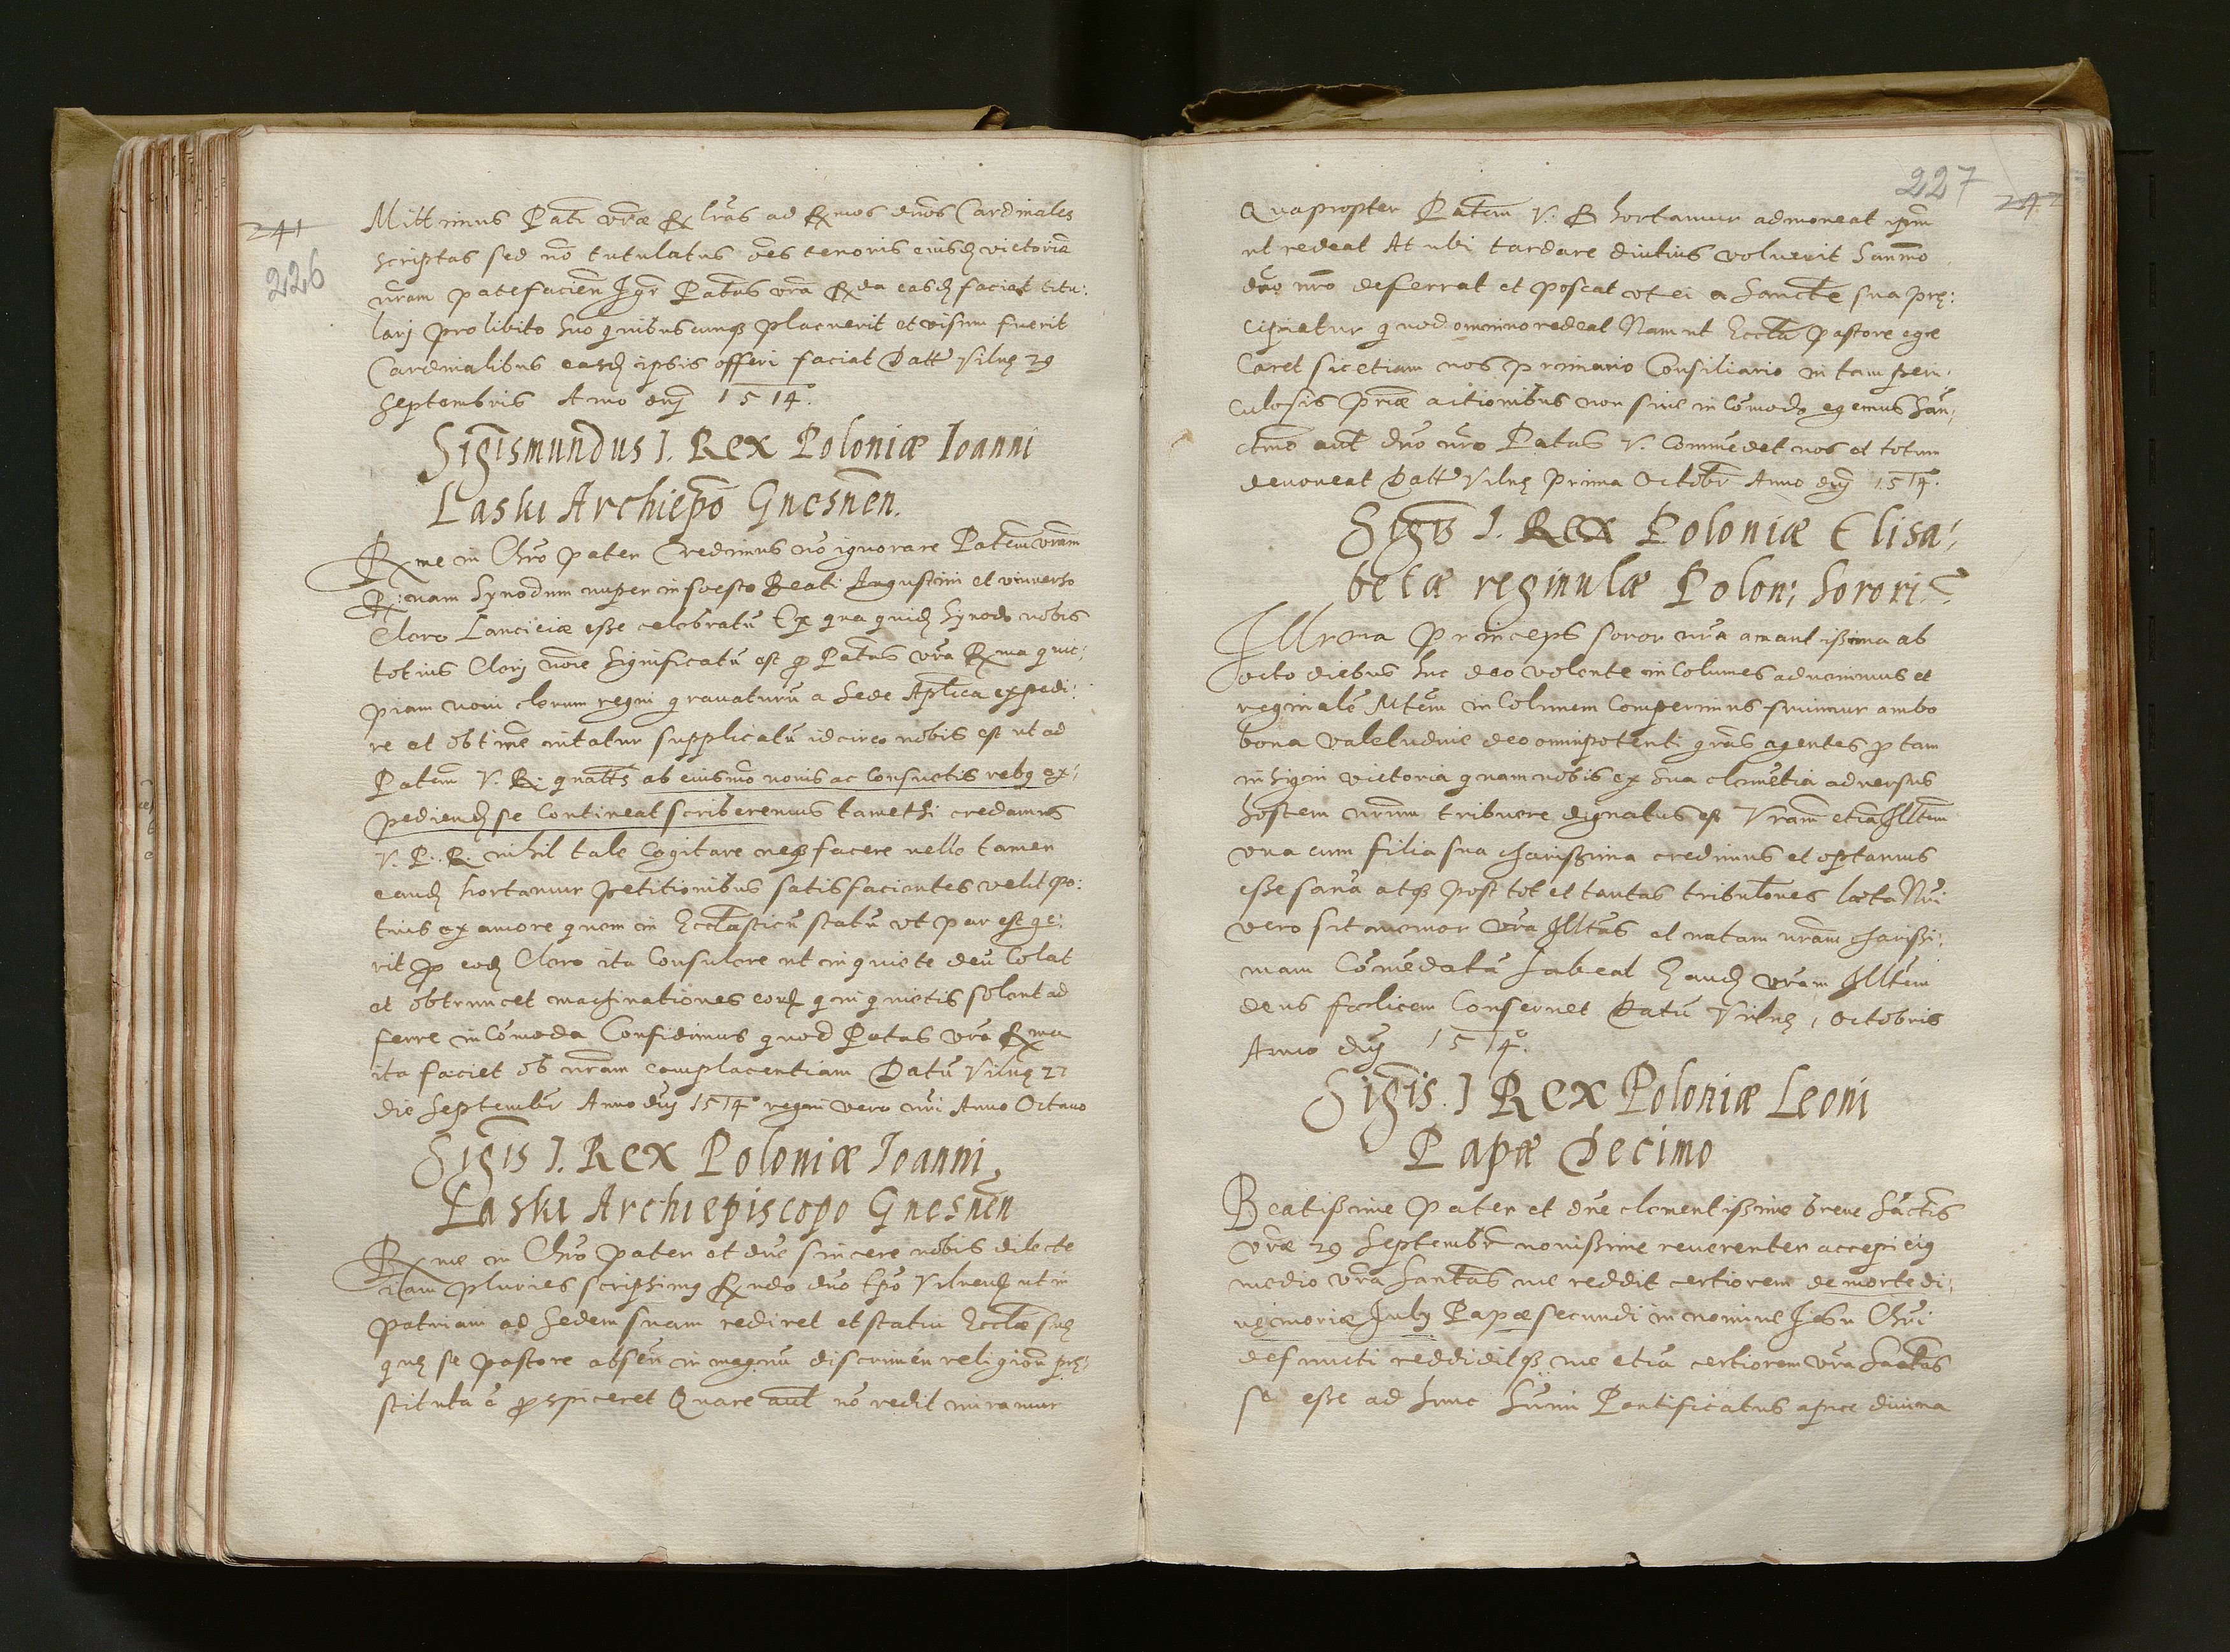 241
226
Mittimus Pati vrae Rx lras ad Rxmos dnos Cardinales
scriptas sed no tutulatus oes tenoris eiusdz victoria
nram patefacien Igr Patas vra Rxda easdz faciat titu:
larj pro libito suo quibuscunqz placuerit et visum fuerit
Cardinalibus easdz ipsis offeri faciat Datt Vilnę 29
Septembris Anno dnj 1514º.
Sigismundus I. Rex Poloniæ Ioanni
Laski Archiepo Gnesnen.
Rxme in Chro pater Credimus no ignorare Patem vram
Rx: nam Synodum nuper in foesto Beati Augustini et vniuerso
Clero Lanciciæ esse celebratu Ex qua quidz Synodo nobis
totius Clerj noie significatu est p Patas vra Rxma quic:
piam noui clerum regni grauaturu a Sede Aplica expedi:
re et obtine nitatur supplicatu idcirco nobis est ut ad
Patem V. R. quatts ab eiusmo nouis ac consuetis rebq ex:
pediendz se contineat scriberemus tamethi credamus
V. P. R. nihil tale cogitare neqz facere uelle tamen
eandz hortamur petitionibus satisfacientes velit po:
tius ex amore quem in Ecclasticu statu vt par est ge:
rit p eodz Clero ita consulere ut in quiete deu colat
et obtruncet machinationes eorz q inquietis solent ad
ferre incomoda Confidimus quod Patas vra Rxma
ita faciet ob nram complacentiam Datu Vilnę 27
die Septembr Anno dnj 1514º regni vero nri Anno Octauo
Sigis I. Rex Poloniæ Joanni
Laski Archiepiscopo Gnesnen
Rxme in Chro pater et dne sincere nobis dilecte
iam pluries scripsimq Rxndo dno Epo Vilnendz ut in
patriam ad Sedem suam rediret et statui Ecclæ suę
quę se pastore absen in magnu discrimen religion prę:
stituta e pspiceret Quare aut no redit miramur
227
242
Quapropter Patem V. R hortamur admoneat ipm
ut redeat At ubi tardare diutius voluerit Sanmo
dno nro deferrat et poscat vt ei a Sancte sua prę:
cipiatur quod omnino redeat Nam ut Eccla pastore egre
caret sic etiam nos primario Consiliario in tam peri:
culosis priæ actionibus non sine incomodo egemus San:
ctmo aut dno nro Patas V. commedet nos et totum
deuoueat Datt Vilnę prima Octobr Anno dnj 1514º.
Sigis I. Rex Poloniæ Elisa:
betæ reginulæ Polon: Sorori
Illrma princeps soror nra amantissima ab
octo diebus huc deo volente incolumes aduenimus et
reginale Mtem incolumem comperimus fruimur ambo
bona valetudine deo omnipotenti gras agentes p tam
insigni victoria quam nobis ex sua clemetia aduersus
hostem nrum tribuere dignatus est Vram etia Illtem
vna cum filia sua charissima credimus et optamus
esse sana atqz post tot et tantas tribulones læta Nri
vero sit memor vra Illtas et natam nram charissi:
mam comedata habeat Eandz vram Illtem
deus fælicem conseruet Datu Vilnę 1 Octobris
Anno dnj 1514º.
Sigis. I Rex Poloniæ Leoni
Papæ Decimo
Beatissime Pater et dne clementissime breue Sanctis
vræ 29 Septembr nouissime reuerenter accepi eiq
medio vra Santas me reddit certiorem de morte di:
uę moriæ Julij Papæ secundi in nomine Jesu Chri
defuncti reddiditqz me etia certiorem vra Santas
se esse ad hunc Sumi Pontificatus apice diuina